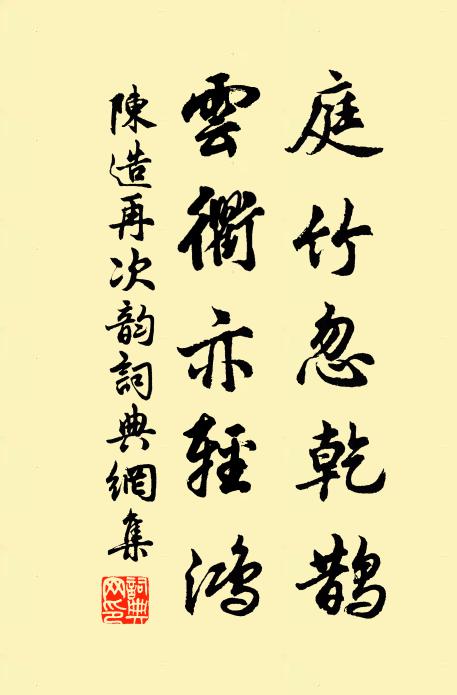 庭竹忽乾鵲
雲衢亦輕鴻
陳造再次韵詞典網集